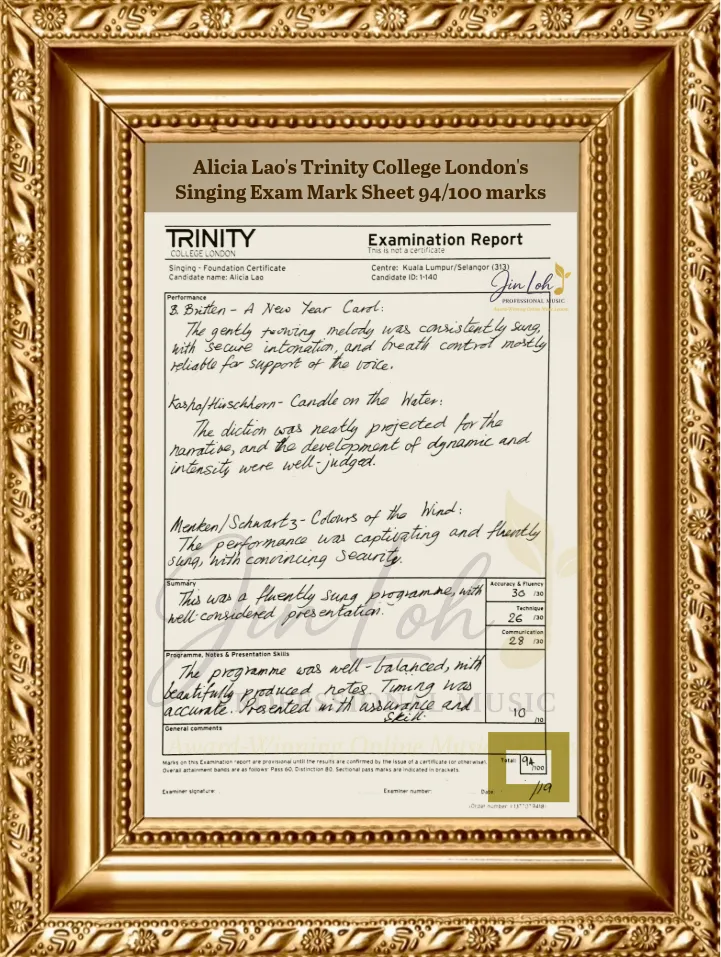 Alicia Lao's Trinity College London's
Singing Exam Mark Sheet 94/100 marks
TRINITY
COLLEGE LONDON
Examination Report
This is not a certificate
Singing - Foundation Certificate
Candidate name: Alicia Lao
Centre: Kuala Lumpur/Selangor (313)
Candidate ID: 1-140
Jin Loh
PROFESSIONAL MUSIC
Performance
B. Britten - A New Year Carol:
The gently flowing melody was consistently sung,
with secure intonation, and breath control mostly
reliable for support of the voice.
Kasha/Hirschhorn - Candle on the Water:
The diction was neatly projected for the
narrative, and the development of dynamic and
intensity were well-judged.
Menken/Schwartz - Colours of the Wind:
The performance was captivating and fluently
sung, with convincing security.
Summary
This was a fluently sung programme, with
well-considered presentation.
Accuracy & Fluency
30 /30
Technique
26 /30
Communication
28 /30
Programme, Notes & Presentation Skills
The programme was well-balanced, with
beautifully produced notes. Timing was
accurate. Presented with assurance and
skill.
10 /10
General comments
Jin Loh
PROFESSIONAL MUSIC
Award Winning Online Music
Marks on this Examination report are provisional until the results are confirmed by the issue of a certificate (or otherwise).
Overall attainment bands are as follows: Pass 60, Distinction 80. Sectional pass marks are indicated in brackets.
Total: 94 /100
Examiner signature:
Examiner number:
Date: /19